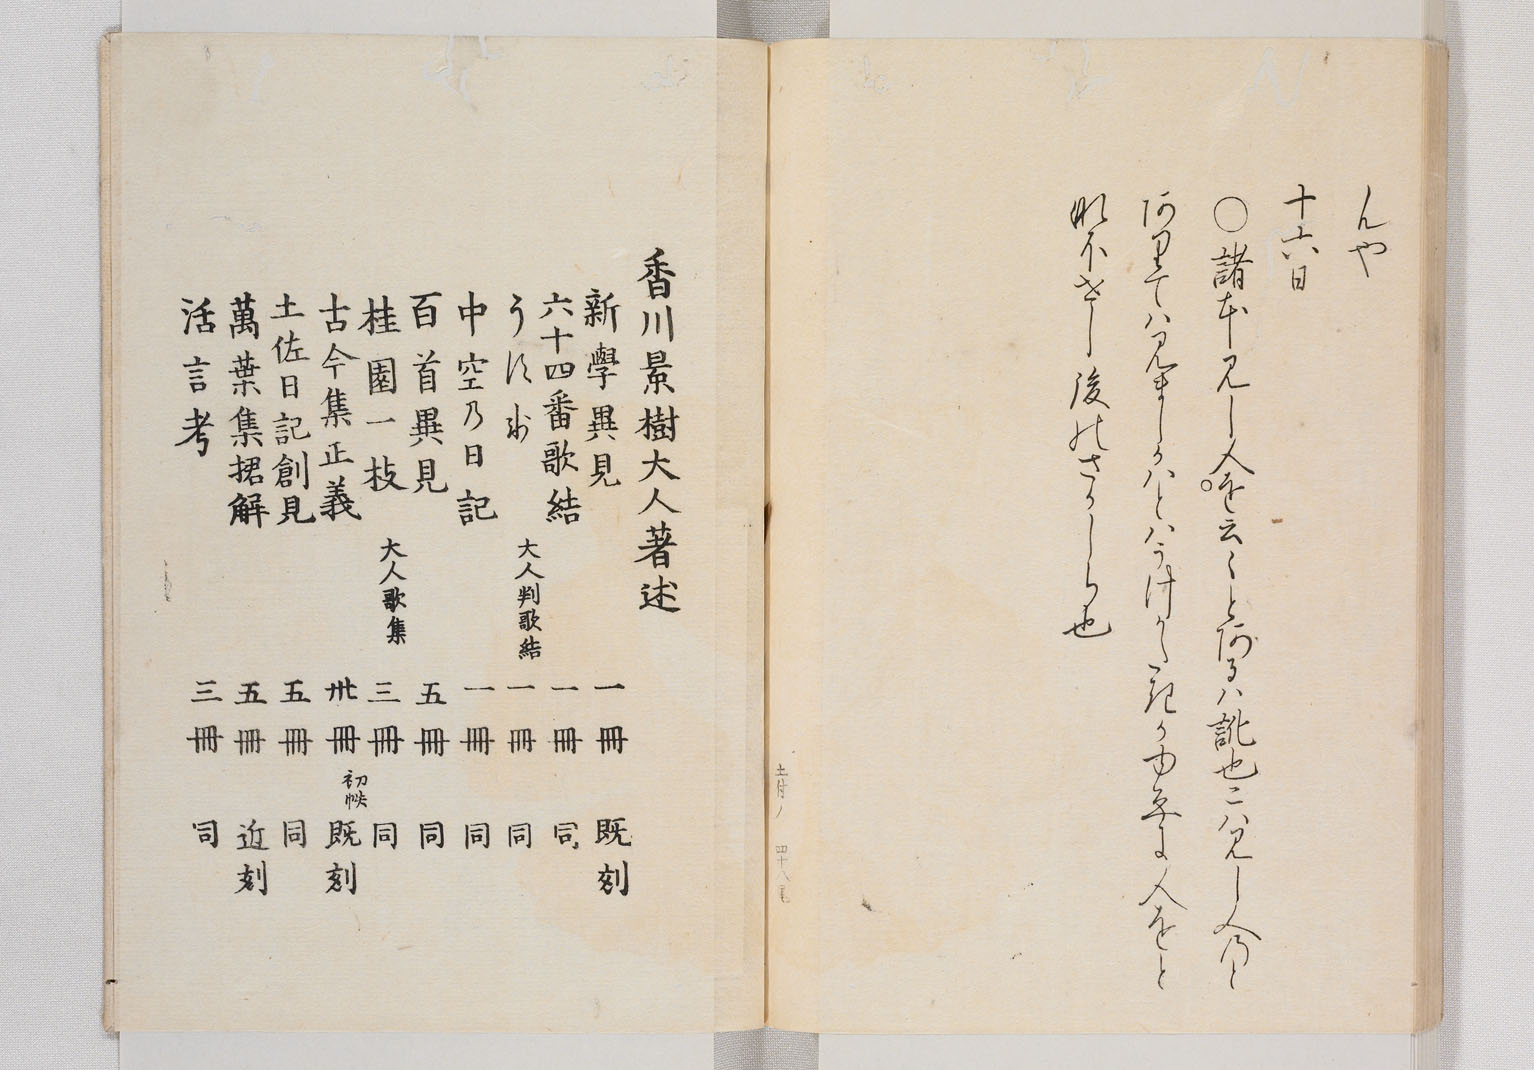 んや
十六日
○諸本見し人を云々と阿るハ訛也こハ見し人のと
阿里てハ見まし
後のさかしら也
土付ノ 四十八尾
香川景樹大人著述
新學異見 一冊 既刻
六十四番歌結 大人判歌結 一冊 同
一冊 同
中空乃日記 一冊 同
百首異見 五冊 同
桂園一枝 大人歌集 三冊 同
古今集正義 卅冊 初帙 既刻
土佐日記創見 五冊 同
萬葉集捃解 五冊 近刻
活言考 三冊 同